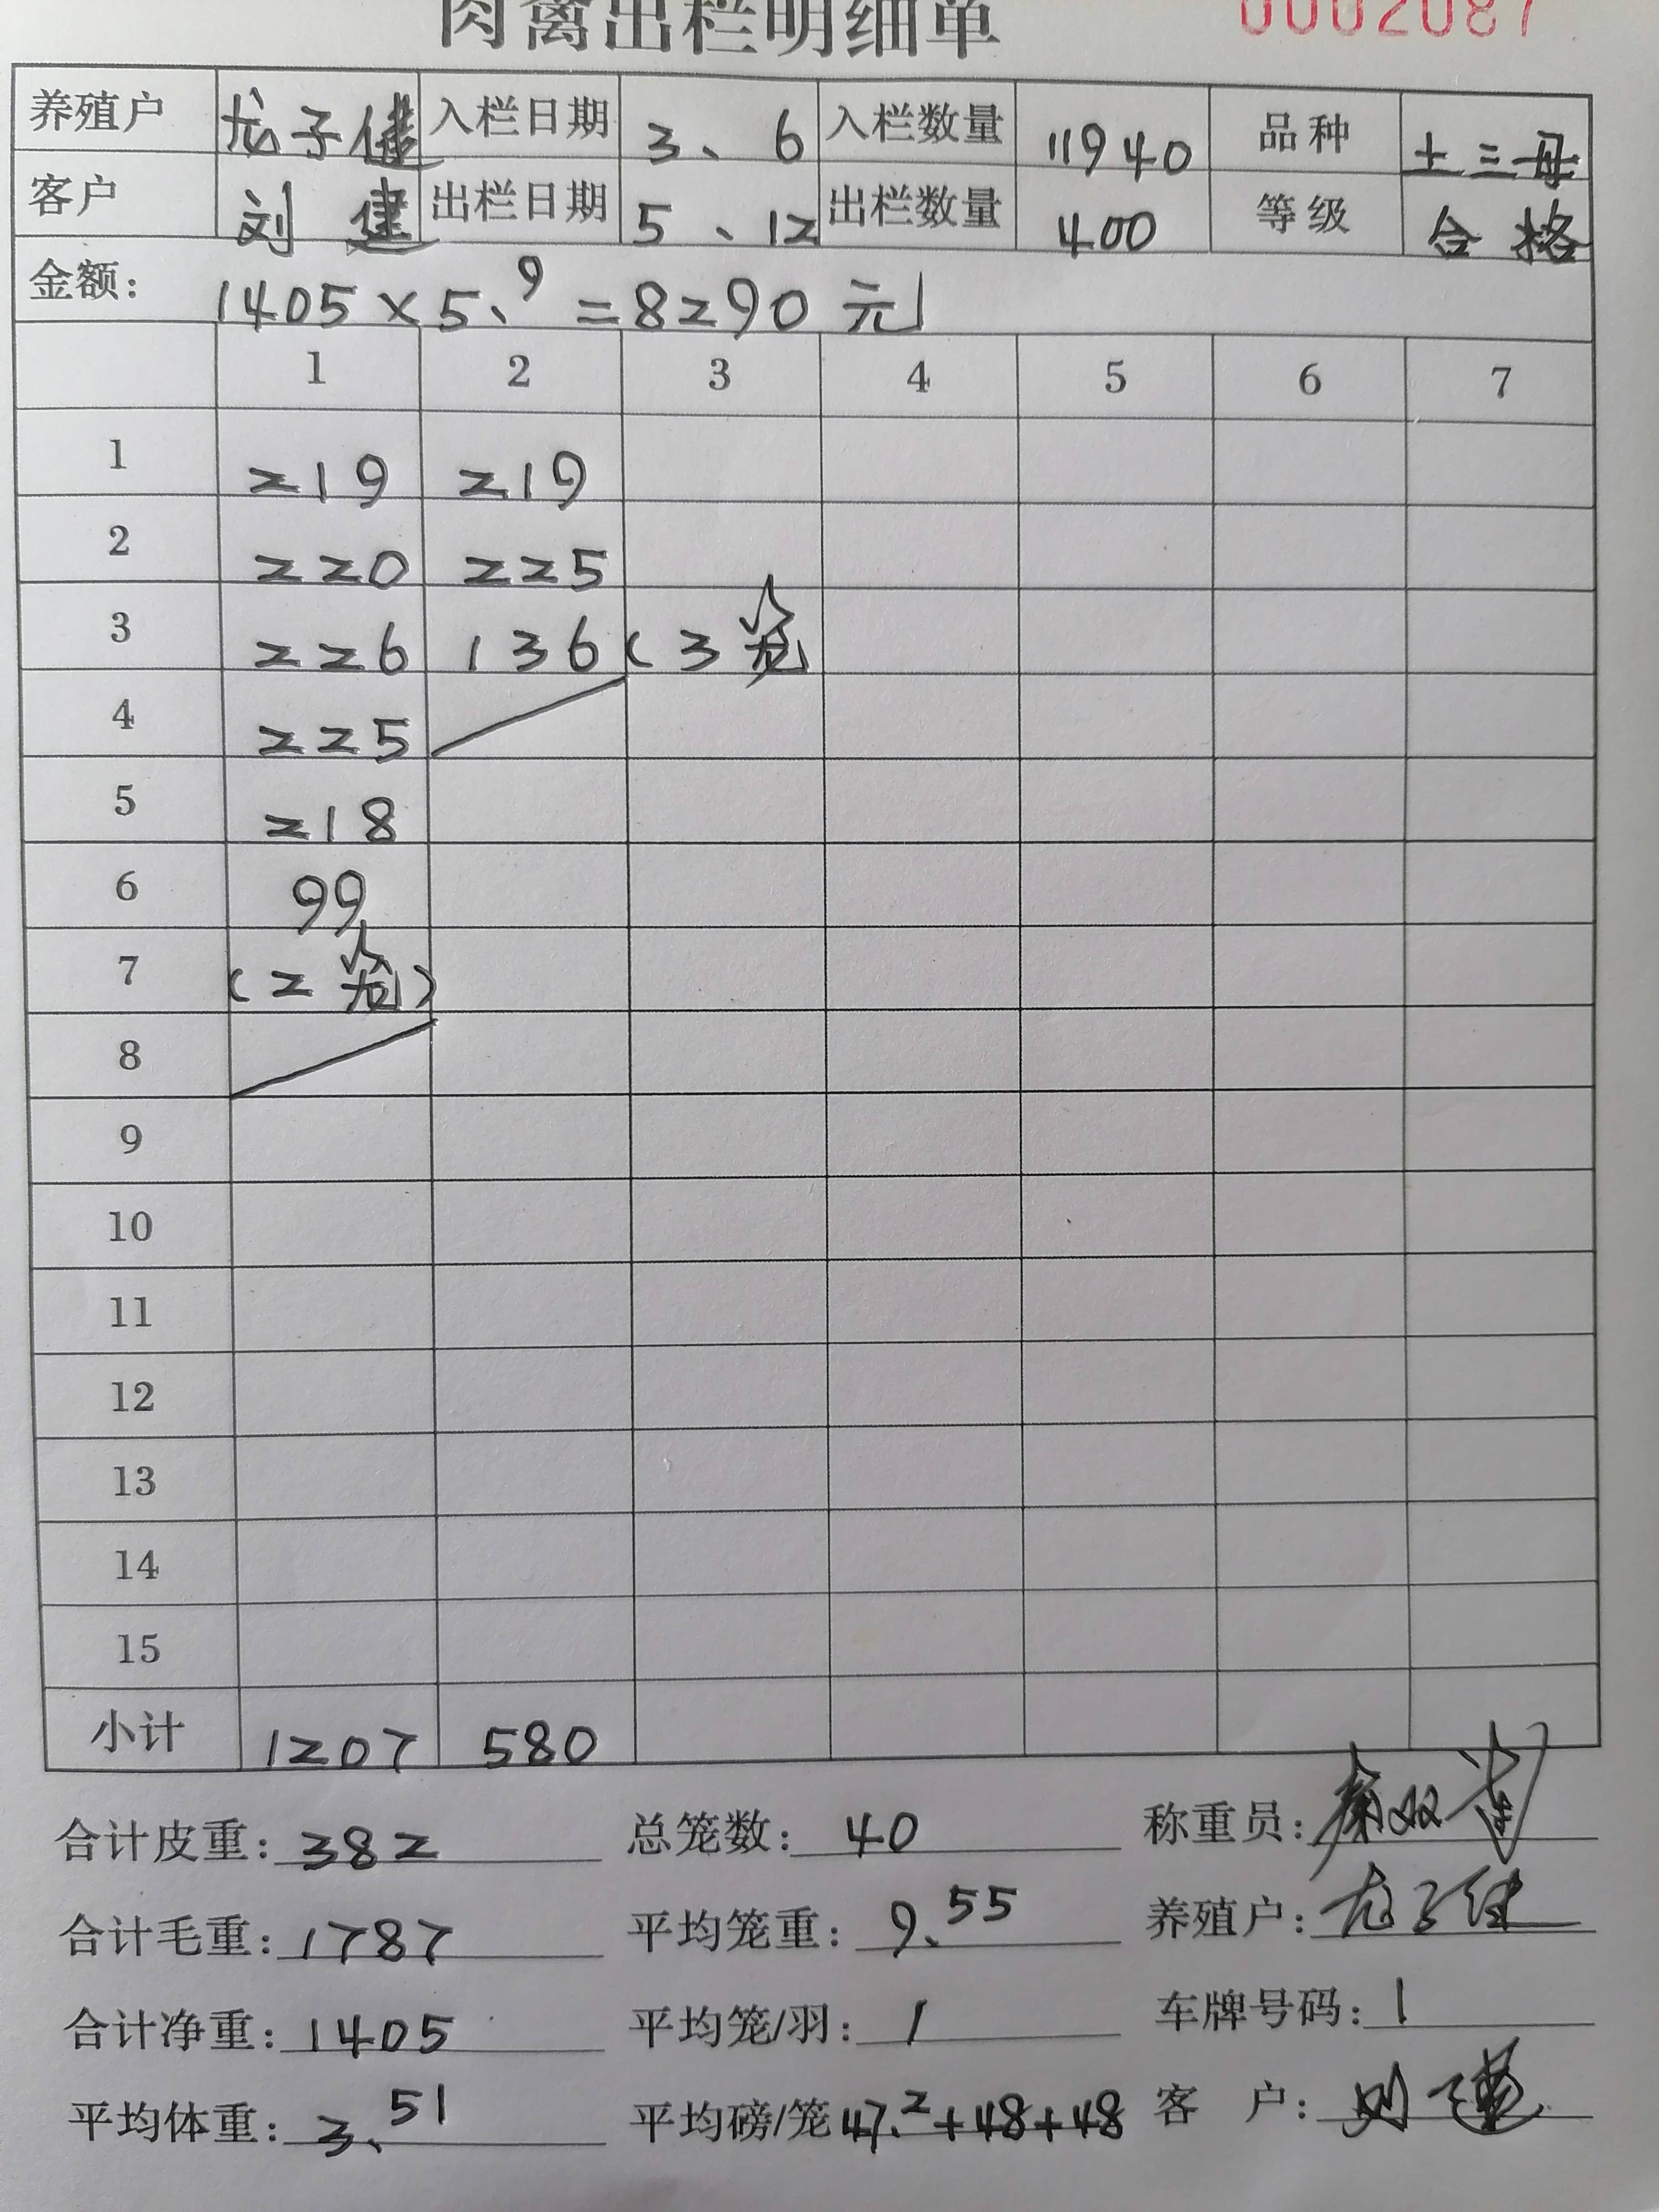 肉禽出栏明细单 0002087
养殖户 龙子健 入栏日期 3、6 入栏数量 11940 品种 土三母
客户 刘建 出栏日期 5、12 出栏数量 400 等级 合格
金额: 1405×5、9=8290元
1 2 3 4 5 6 7
1 219 219
2 220 225
3 226 136 (3笼
4 225
5 218
6 99
7 (2笼)
8
9
10
11
12
13
14
15
小计 1207 580
合计皮重: 382 总笼数: 40 称重员:
合计毛重: 1787 平均笼重: 9、55 养殖户: 龙子健
合计净重: 1405 平均笼/羽: / 车牌号码: 1
平均体重: 3、51 平均磅/笼 47、2+48+48 客 户: 刘建